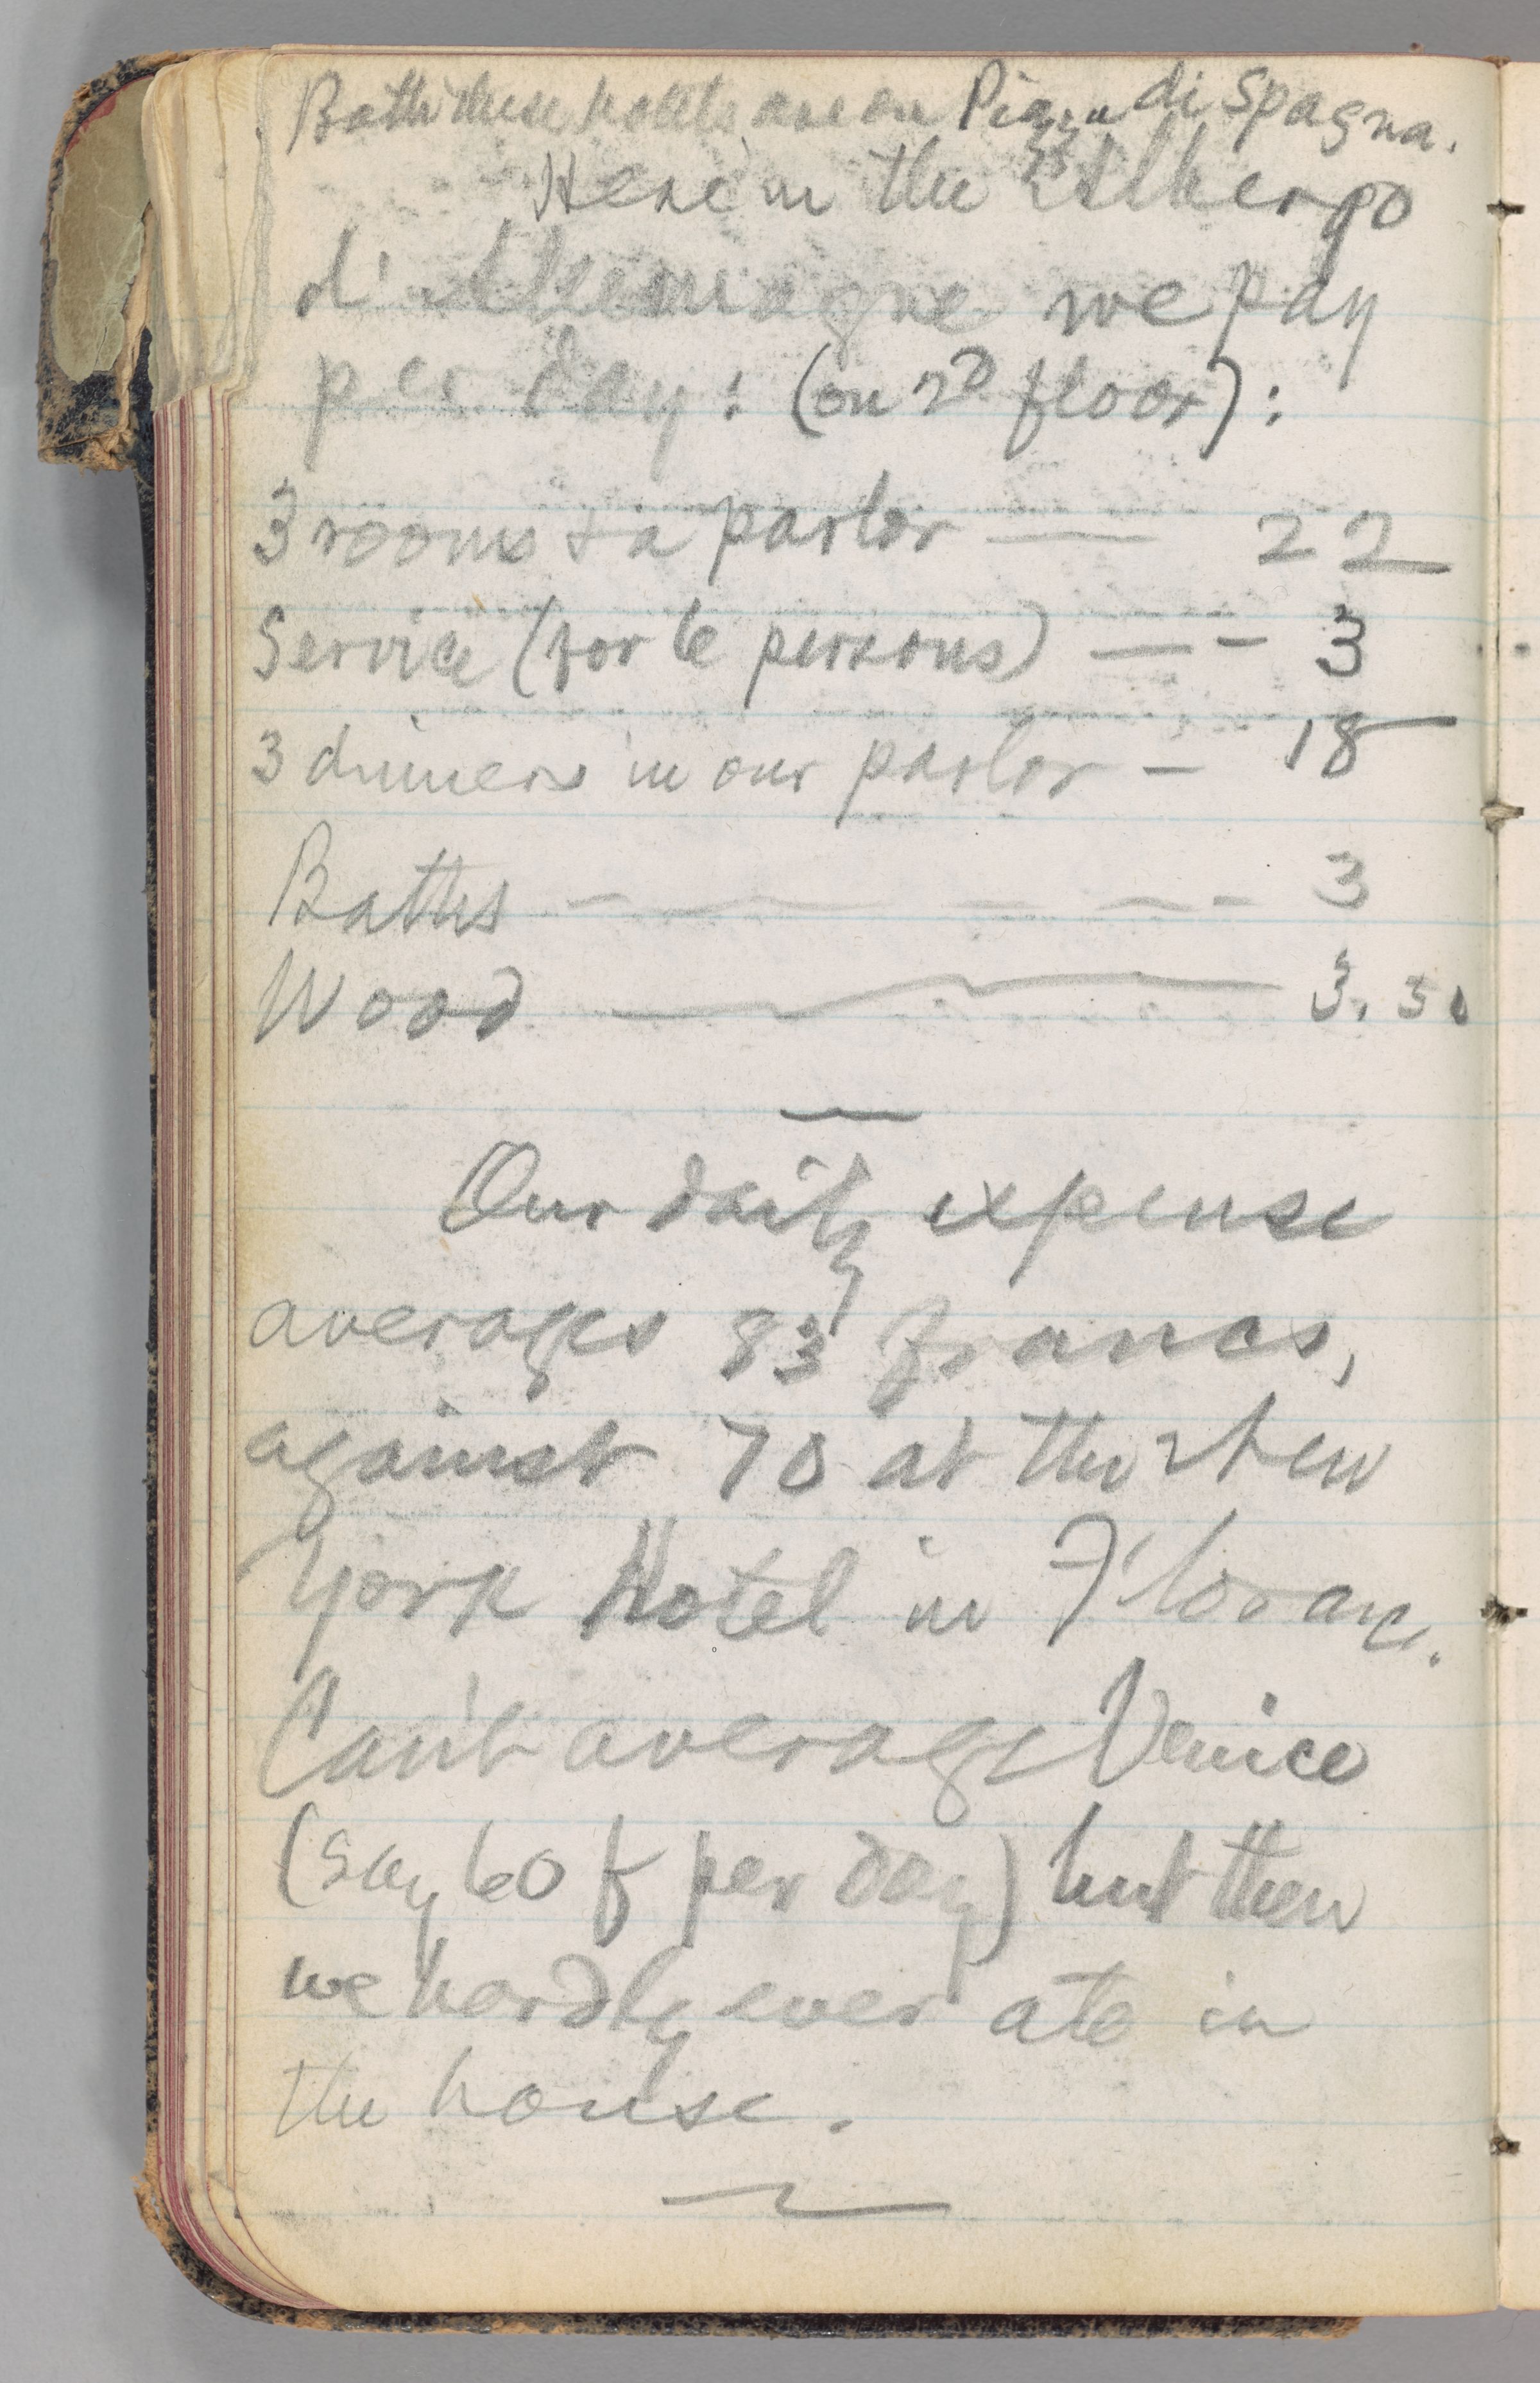 Both these hotels are on Piazza di Spagna.
Here in the Albergo
d'Allemagne we pay
per day: (on 2D floor):
3 rooms & a parlor — 22
Service (for 6 persons) — - 3
3 dinners in our parlor - 18
Baths - — - - - 3
Wood — 3.30
Our daily expense
averages 83 francs,
against 70 at the New
York Hotel in Florence.
Can't average Venice
(say 60 f per day) but then
we hardly ever ate in
the house.